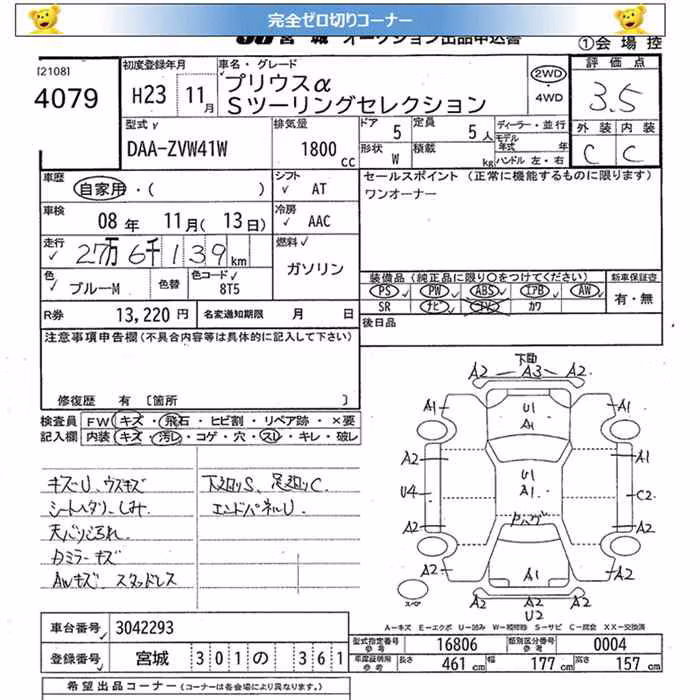 完全ゼロ切りコーナー
JU 宮城 オークション出品申込書 ①会場控
[2108]
4079
初度登録年月 H23 11月
車名・グレード
プリウスα
Sツーリングセレクション
2WD
4WD
評価点
3.5
外装 内装
C C
型式
DAA-ZVW41W
排気量
1800 cc
ドア 5
定員 5人
形状 W
積載 kg
ディーラー・並行
モデル年式 年
ハンドル 左・右
車歴
自家用・( )
シフト
AT
セールスポイント (正常に機能するものに限ります)
ワンオーナー
車検
08年 11月( 13日)
冷房
AAC
走行
27万6千139 km
燃料
ガソリン
色
ブルーM
色替
色コード
8T5
装備品 (純正品に限り○をつけてください)
PS PW ABS エアB AW
SR ナビ TV カワ
新車保証書
有・無
R券
13,220 円
名変通知期限 月 日
後日品
注意事項申告欄(不具合内容等は具体的に記入して下さい)
修復歴 有 〔箇所 〕
検査員 FW キズ・飛石・ヒビ割・リペア跡・×要
記入欄 内装 キズ・汚レ・コゲ・穴・スレ・キレ・破レ
キズU、ウスキズ
シートヘタリ、しみ
天バリ汚れ
Rミラーキズ
AWキズ スタッドレス
下廻りS、足廻りC
エンドパネルU
下回
A2 A3 A2
A1 U1 A1
A1
A2 A1
U4 U1 C2
A1
A2 A2
A2 A1 A2
A2 A2 A2
U2
スペア
A-キズ E-エクボ U-凹み W-補修跡 S-サビ C-腐食 XX-交換済
車台番号
3042293
登録番号
宮城 301 の 361
型式指定番号 参考 16806
類別区分番号 参考 0004
車庫証明用 参考 長さ 461cm 幅 177cm 高さ 157cm
希望出品コーナー (コーナーは各会場により異なります。)